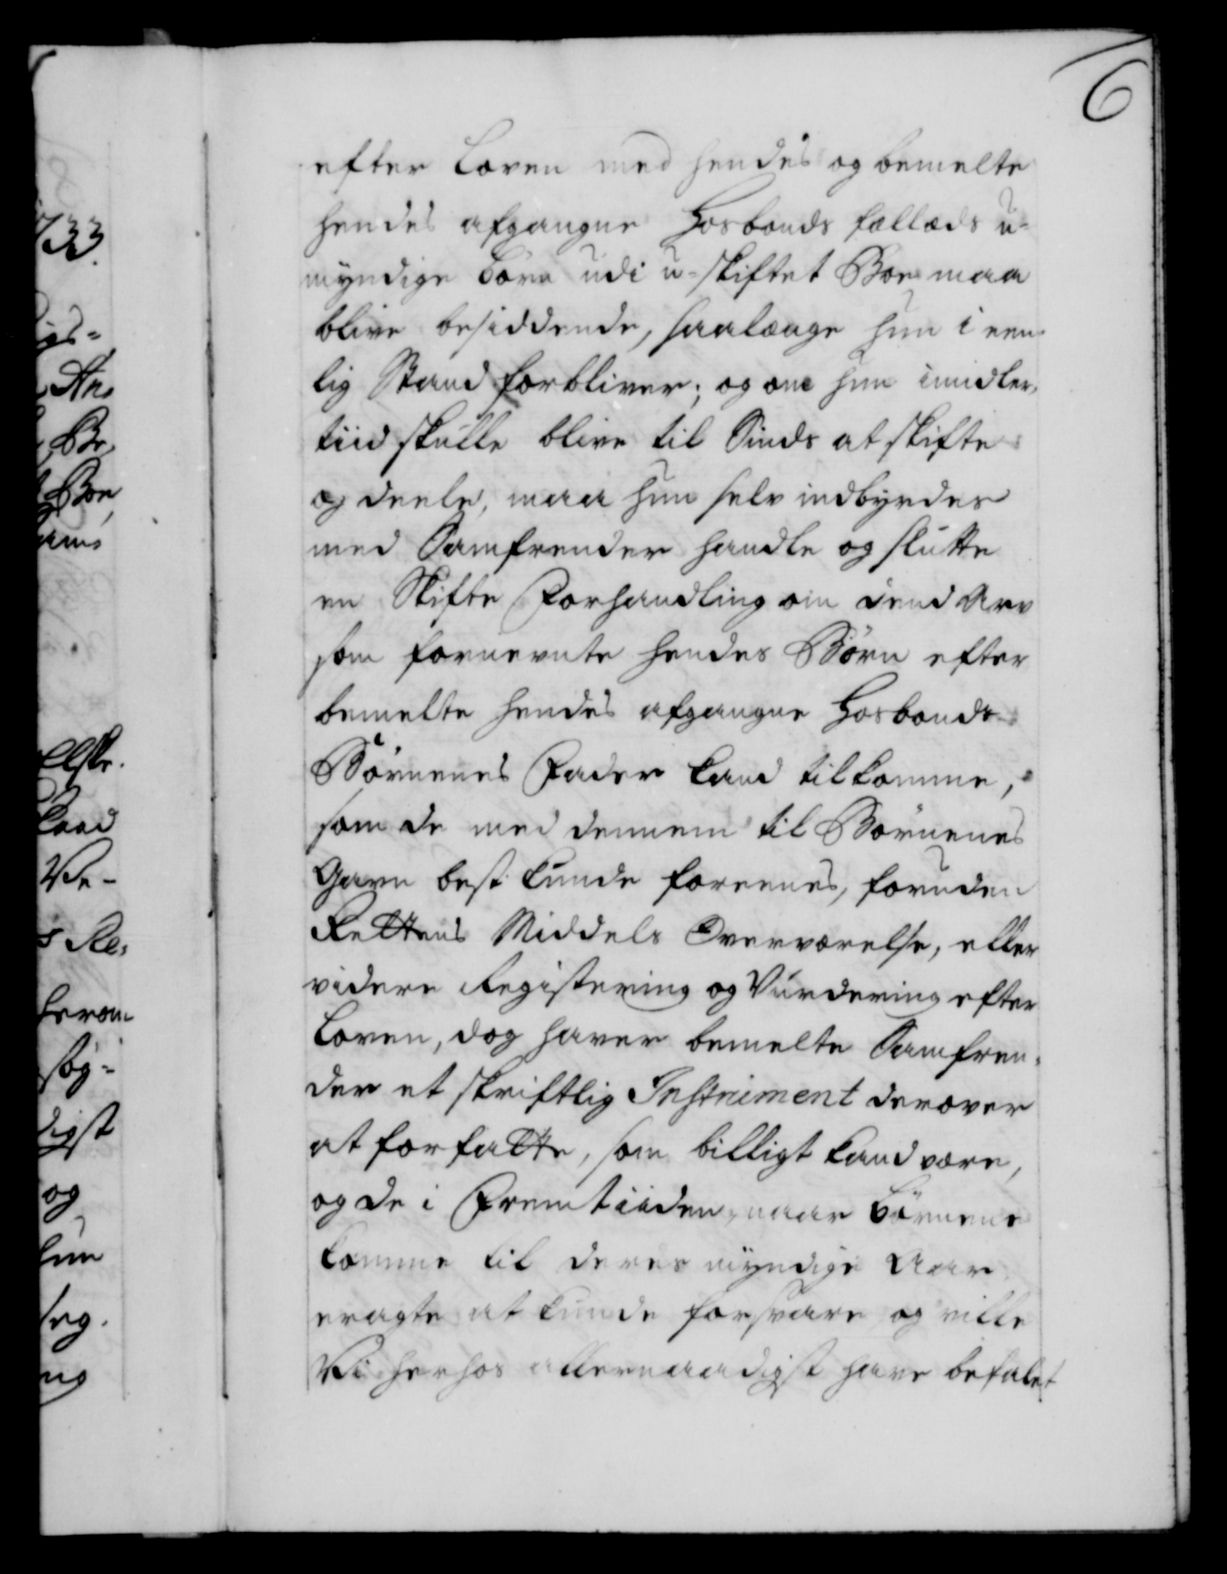 6
efter Loven med hendes og bemelte
hendes afgangne Hosbonds fælleds u-
myndige Børn udi u-skiftet Boe maa
blive besiddende, saalænge hun i een-
lig Stand forbliver; og om hun imidler-
tiid skulle blive til Sinds at skifte
og deele, maa hun selv indbyrdes
med Samfrender handle og slutte
en Skifte Forhandling om dend Arv
som fornevnte hendes Børn efter
bemelte hendes afgangne Hosbonds
Børnenes Fader kand tilkomme,
som de med dennem til Børnenes
Gavn best kunde foreenes, foruden
Rettens Middels Overværelse, eller
videre Registering og Vurdering efter
Loven, dog haver bemelte Samfren-
der et skriftlig Instrument derover
at forfatte, som billigt kand være,
og de i Fremtiiden, naar Børnene
komme til deres myndige Aar
eragte at kunde forsvare og ville
Vi herhos allernaadigst have befalet
733.
An-
Be-
Boe
Ve-
herom
søg-
digst
og
hun